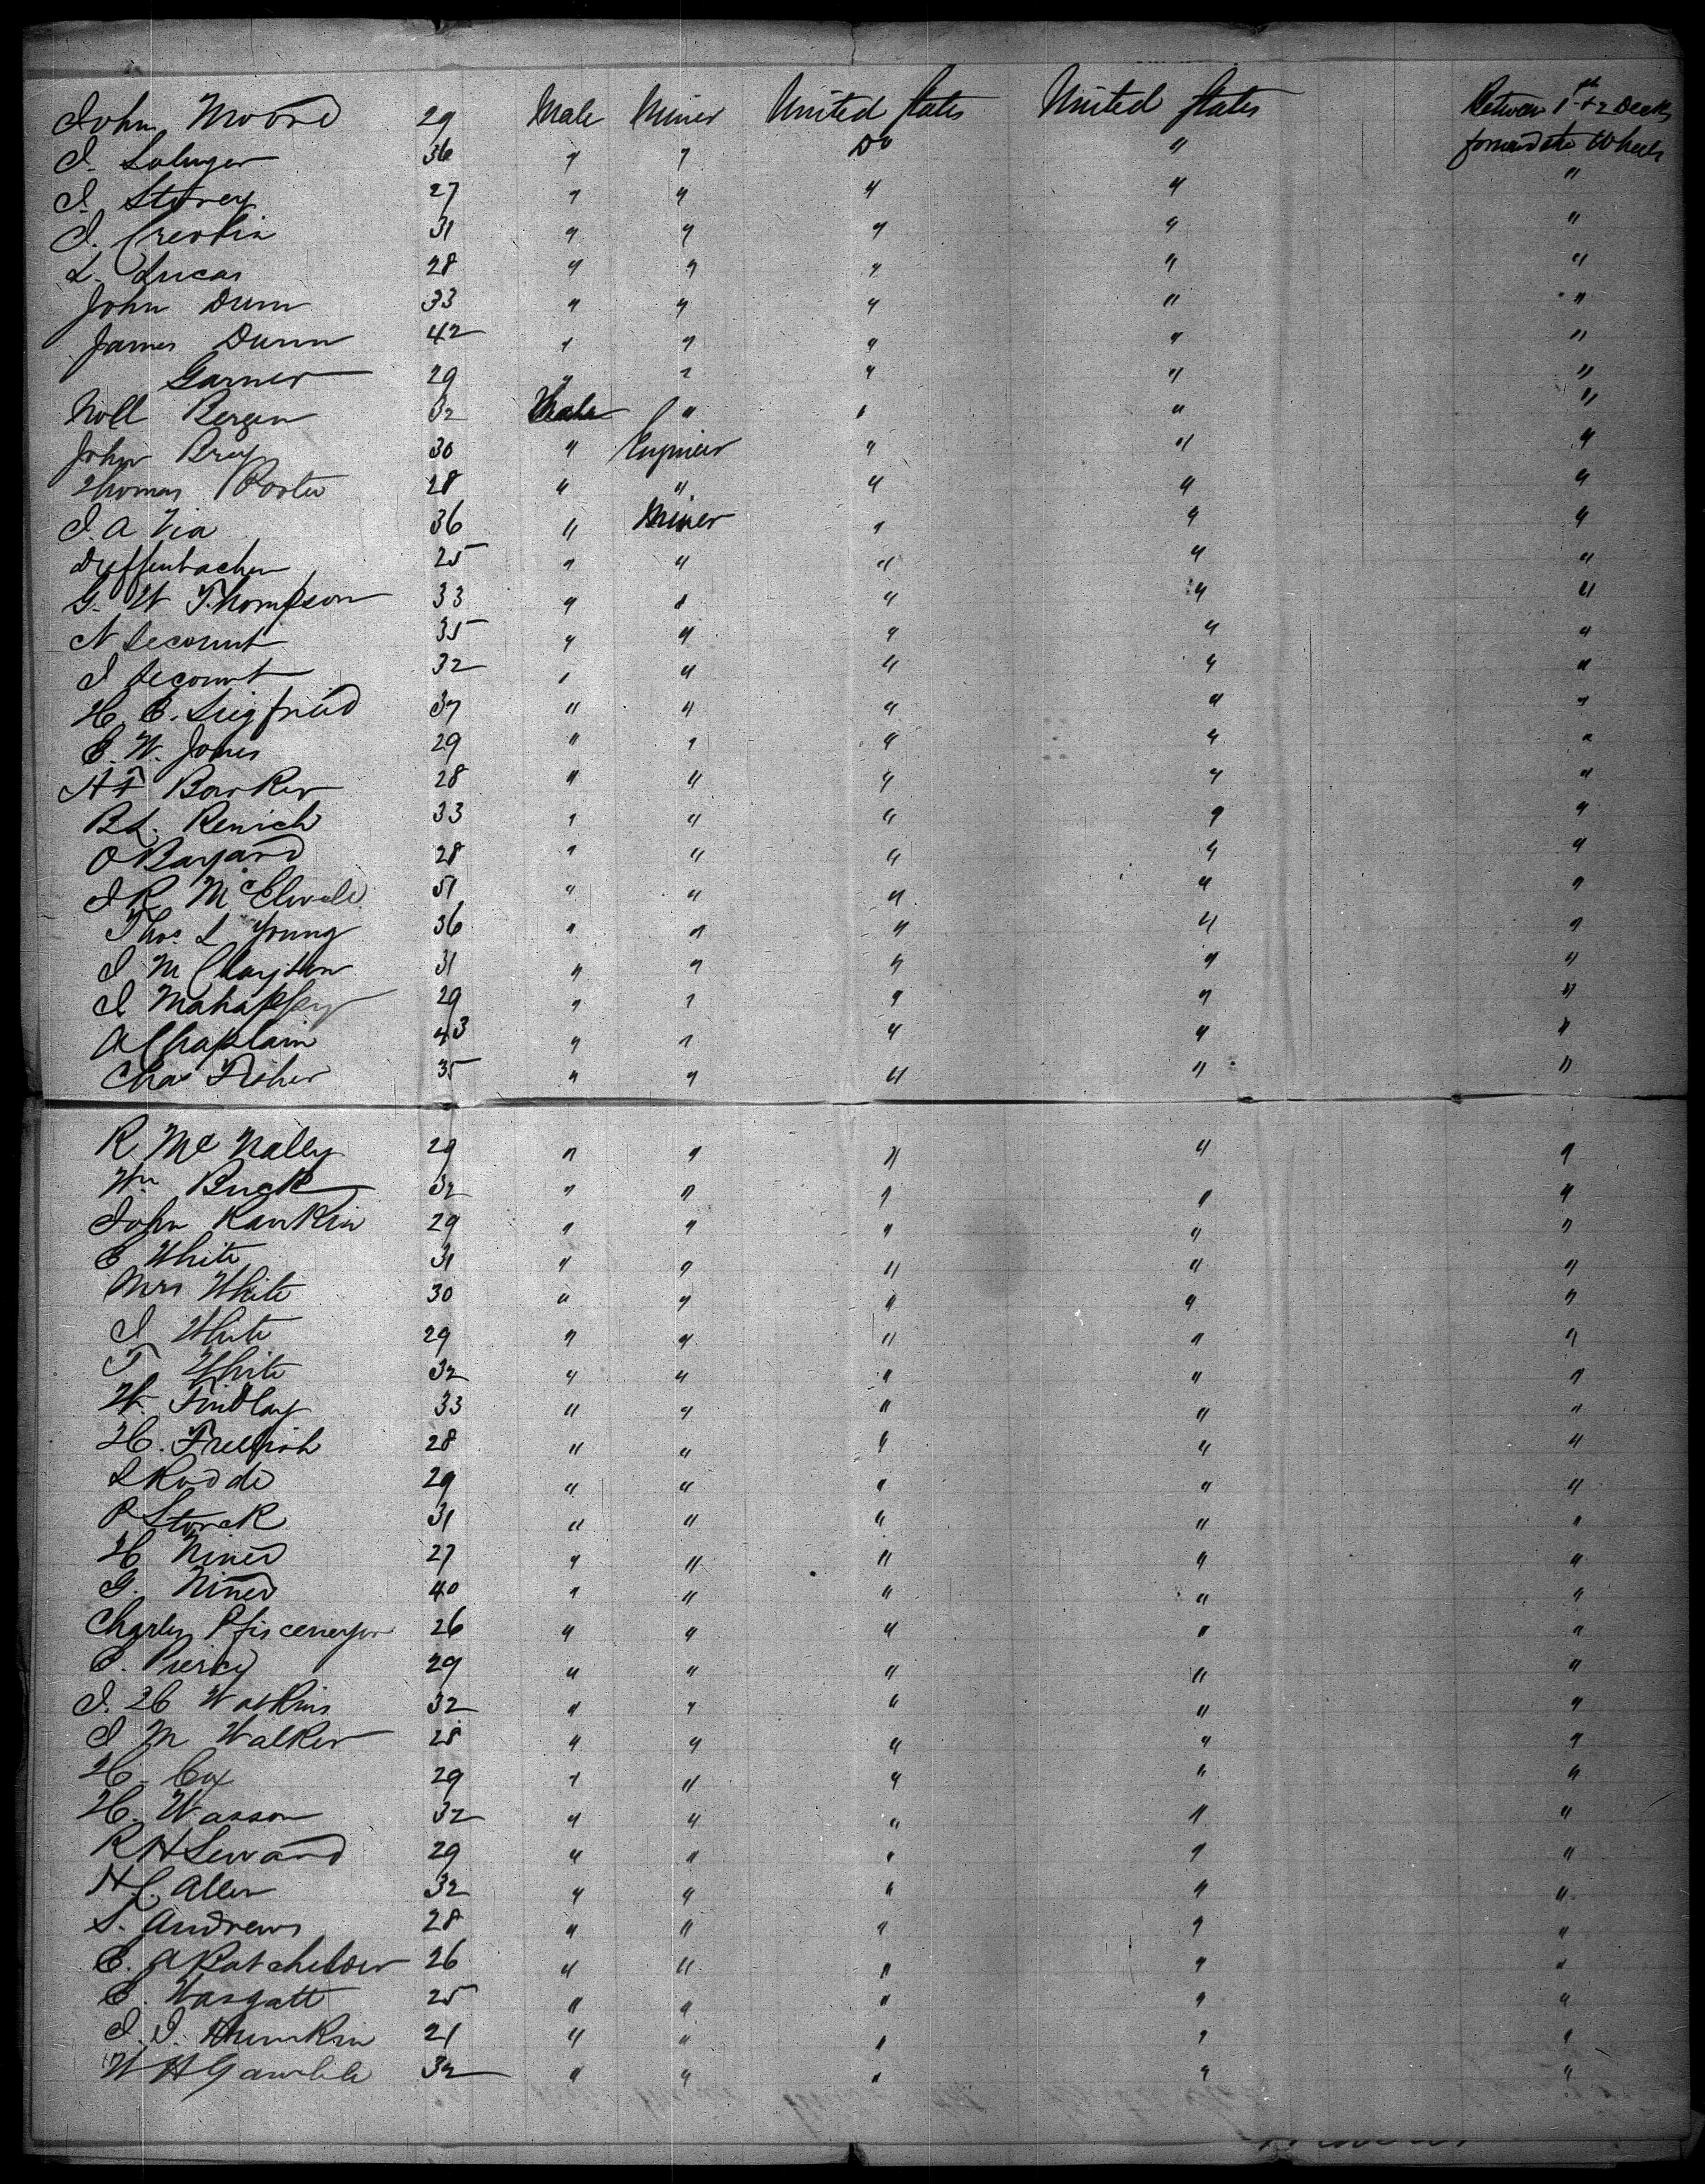 John Moore 29 Male Miner United States United States Between 1st + 2 Deck
forward the Wheels
J. 36 " " Do "
J. Storey 27 " " " " "
J. 31 " " " " "
L. Lucas 28 " " " " "
John Dunn 33 " " " " "
James Dunn 42 " " " " "
Garner 29 " " " " "
Noll Bergen 32 Male " " " "
John Bray 30 " Engineer " " "
Thomas Porter 28 " " " " "
J. A Via 36 " Miner " " "
Dieffenbacher 25 " " " " "
G. W Thompson 33 " " " " "
N Lecount 35 " " " " "
J Lecount 32 " " " " "
H. E. Siegfried 37 " " " " "
E. W. Jones 29 " " " " "
H F Barker 28 " " " " "
B L. Renich 33 " " " " "
O Bayard 28 " " " " "
J R 51 " " " " "
Thos L Young 36 " " " " "
J M Clayton 31 " " " " "
J Mahaffey 29 " " " " "
A Chaplain 43 " " " " "
Chas Fisher 35 " " " " "
R McNally 29 " " " " "
Wm Buck 32 " " " " "
John Rankin 29 " " " " "
E White 31 " " " " "
Mrs White 30 " " " " "
J White 29 " " " " "
T White 32 " " " " "
W. Findlay 33 " " " " "
H. 28 " " " " "
L Rodde 29 " " " " "
P Storck 31 " " " " "
H Niner 27 " " " " "
G. Niner 40 " " " " "
Charley 26 " " " " "
E. Piercy 29 " " " " "
J. H Watkins 32 " " " " "
J M Walker 28 " " " " "
H. Cox 29 " " " " "
H. Wasson 32 " " " " "
R H Seward 29 " " " " "
H C. Allen 32 " " " " "
S. Andrews 28 " " " " "
E. A Batchelder 26 " " " " "
E. Wasgatt 25 " " " " "
J. J. 21 " " " " "
W H Gamble 32 " " " " "